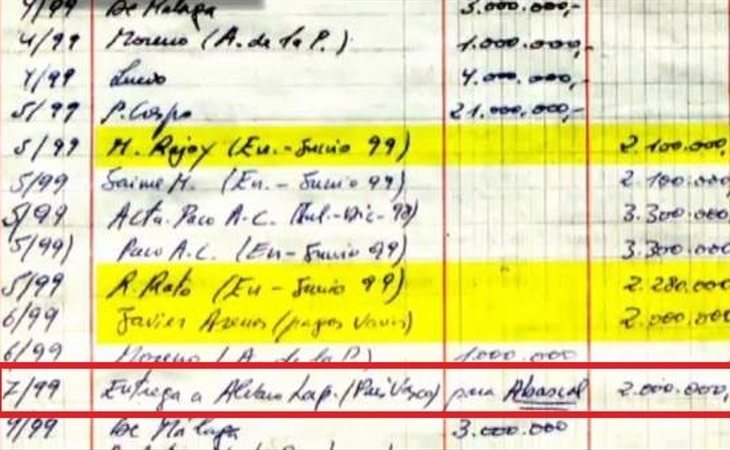 4/99 De Málaga 3.000.000,-
4/99 Moreno (A. de la P.) 1.000.000,-
4/99 4.000.000,-
5/99 21.000.000,-
5/99 M. Rajoy (En.-Junio 99) 2.100.000,
5/99 Jaime M. (En.-Junio 99) 2.100.000,
5/99 Acta. Paco A.C. (Jul.-Dic-98) 3.300.000,
5/99) Paco A.C. (En-Junio 99) 3.300.000,
5/99 R. Rato (En-Junio 99) 2.280.000,
6/99 Javier Arenas (pagos varios) 2.000.000,
6/99 Moreno (A. de la P) 1.000.000
7/99 Entrega a Alvaro Lap. (País Vasco) para Abascal 2.000.000,
De Málaga 3.000.000